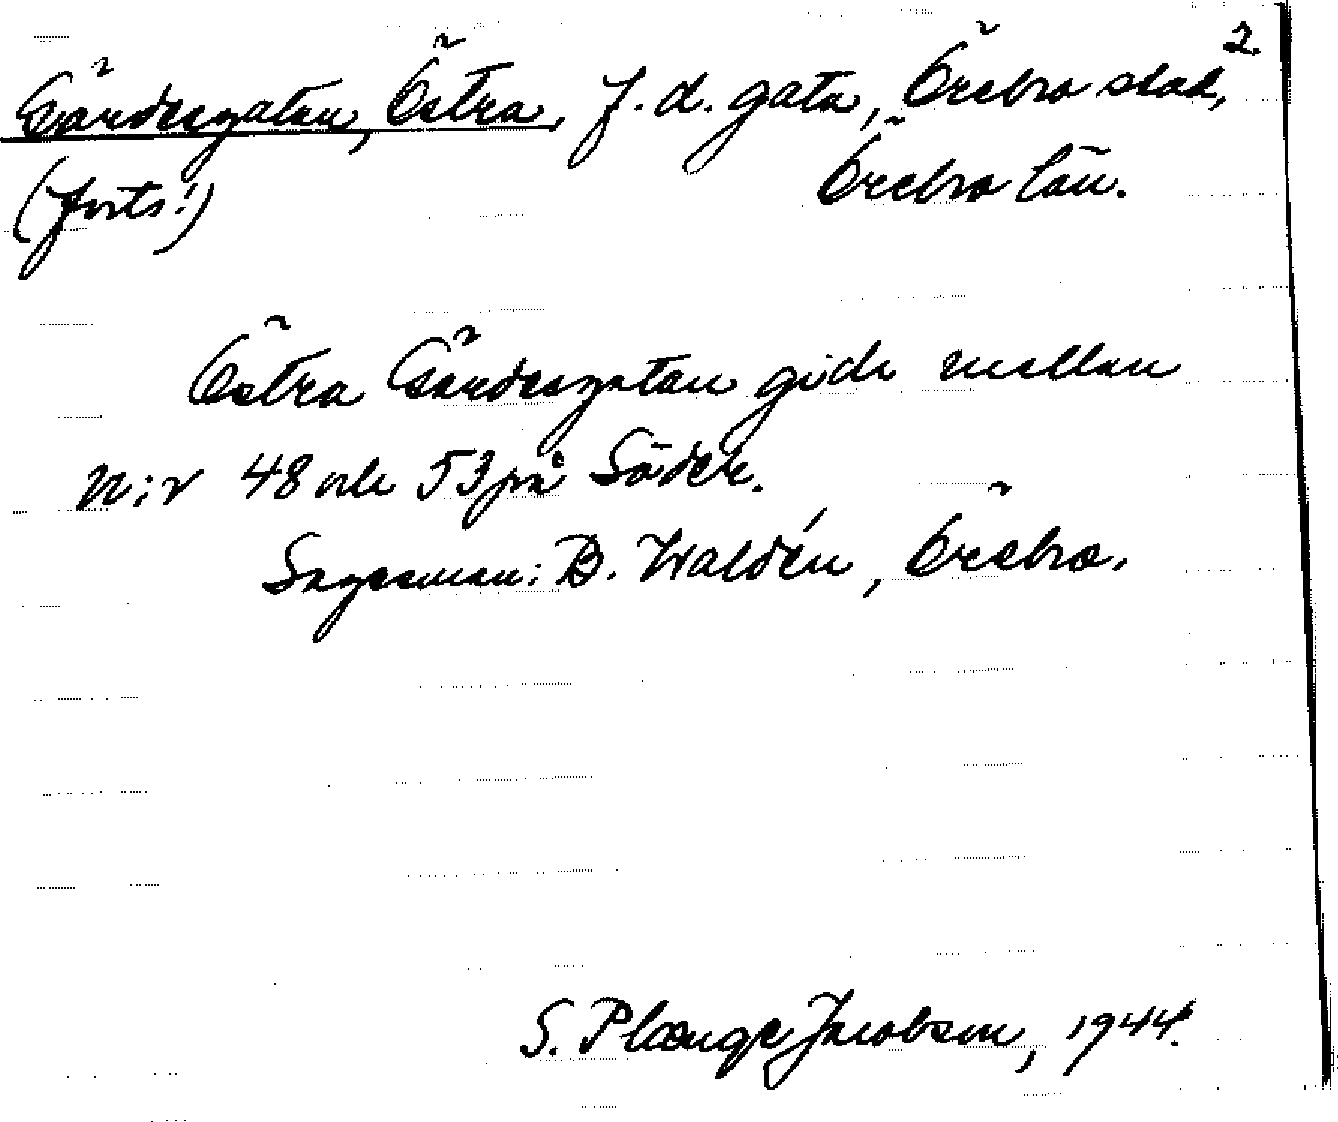 2.
Gärdesgatan, Östra, f.d. gata, Örebro stad,
(forts.) Örebro län.
Östra Gärdesgatan gick mellan
n:r 48 och 53 på Söder.
Sagesman: B. Waldén, Örebro.
S. Plænge Jacobson, 1944.